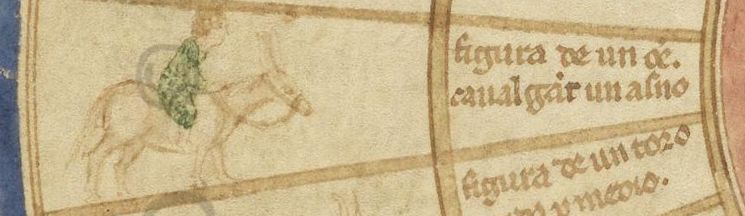 figura de un oẽ.
caualgãt un asno
figura de un toro
y medio.